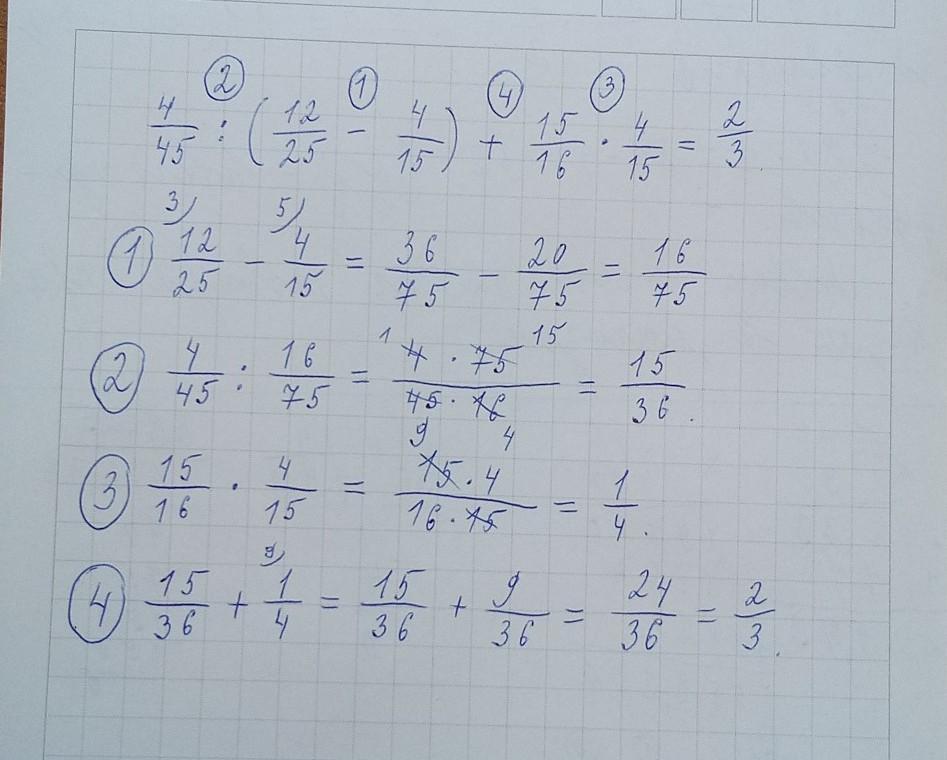 ② ① ④ ③
4/45 : (12/25 - 4/15) + 15/16 · 4/15 = 2/3.
3) 5)
① 12/25 - 4/15 = 36/75 - 20/75 = 16/75
1 15
② 4/45 : 16/75 = 4 · 75/45 · 16 = 15/36.
9 4
③ 15/16 · 4/15 = 15 · 4/16 · 15 = 1/4.
9)
④ 15/36 + 1/4 = 15/36 + 9/36 = 24/36 = 2/3.